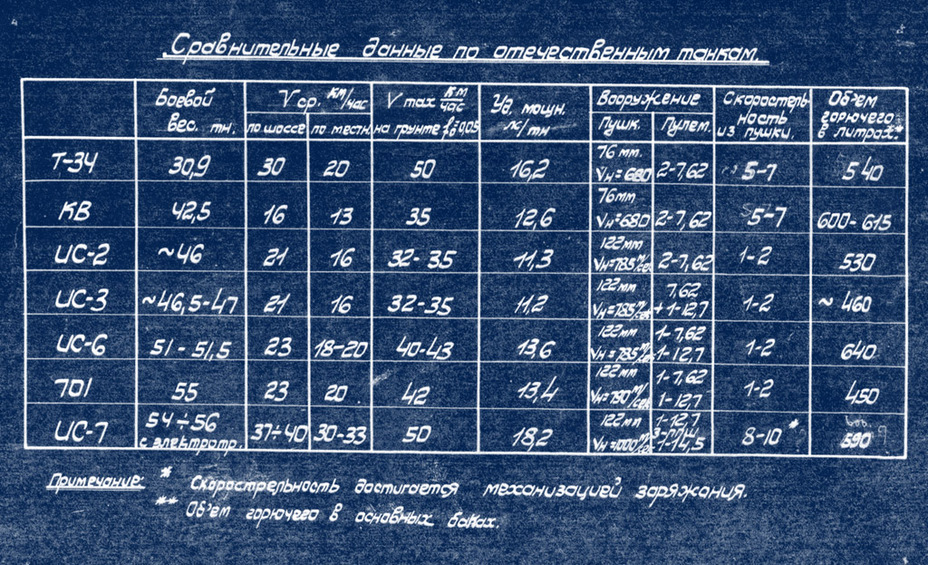 Сравнительные данные по отечественным танкам.
Боевой вес. тн. | V ср. км/час | V max км/час на грунте | Уд. мощн. лс/тн | Вооружение | Скорострельность из пушки. | Об'ем горючего в литрах.**
по шоссе | по местн. | Пушк. | Пулем.
Т-34 | 30,9 | 30 | 20 | 50 | 16,2 | 76 мм. Vн=680 | 2-7,62 | 5-7 | 540
КВ | 42,5 | 16 | 13 | 35 | 12,6 | 76мм Vн=680 | 2-7,62 | 5-7 | 600-615
ИС-2 | ~46 | 21 | 16 | 32-35 | 11,3 | 122мм Vн=785м/сек | 2-7,62 | 1-2 | 530
ИС-3 | ~46,5-47 | 21 | 16 | 32-35 | 11,2 | 122мм Vн=785м/сек | 7,62 + 1-12,7 | 1-2 | ~460
ИС-6 | 51-51,5 | 23 | 18-20 | 40-43 | 13,6 | 122мм Vн=785м/сек | 1-7,62 1-12,7 | 1-2 | 640
701 | 55 | 23 | 20 | 42 | 13,4 | 122мм Vн=790м/сек | 1-7,62 1-12,7 | 1-2 | 450
ИС-7 | 54÷56 с электротр. | 37÷40 | 30-33 | 50 | 18,2 | 122мм Vн=1000м/сек | 1-12,7 1-14,5 | 8-10* | 590
Примечание: * Скорострельность достигается механизацией заряжания.
** Об'ем горючего в основных баках.